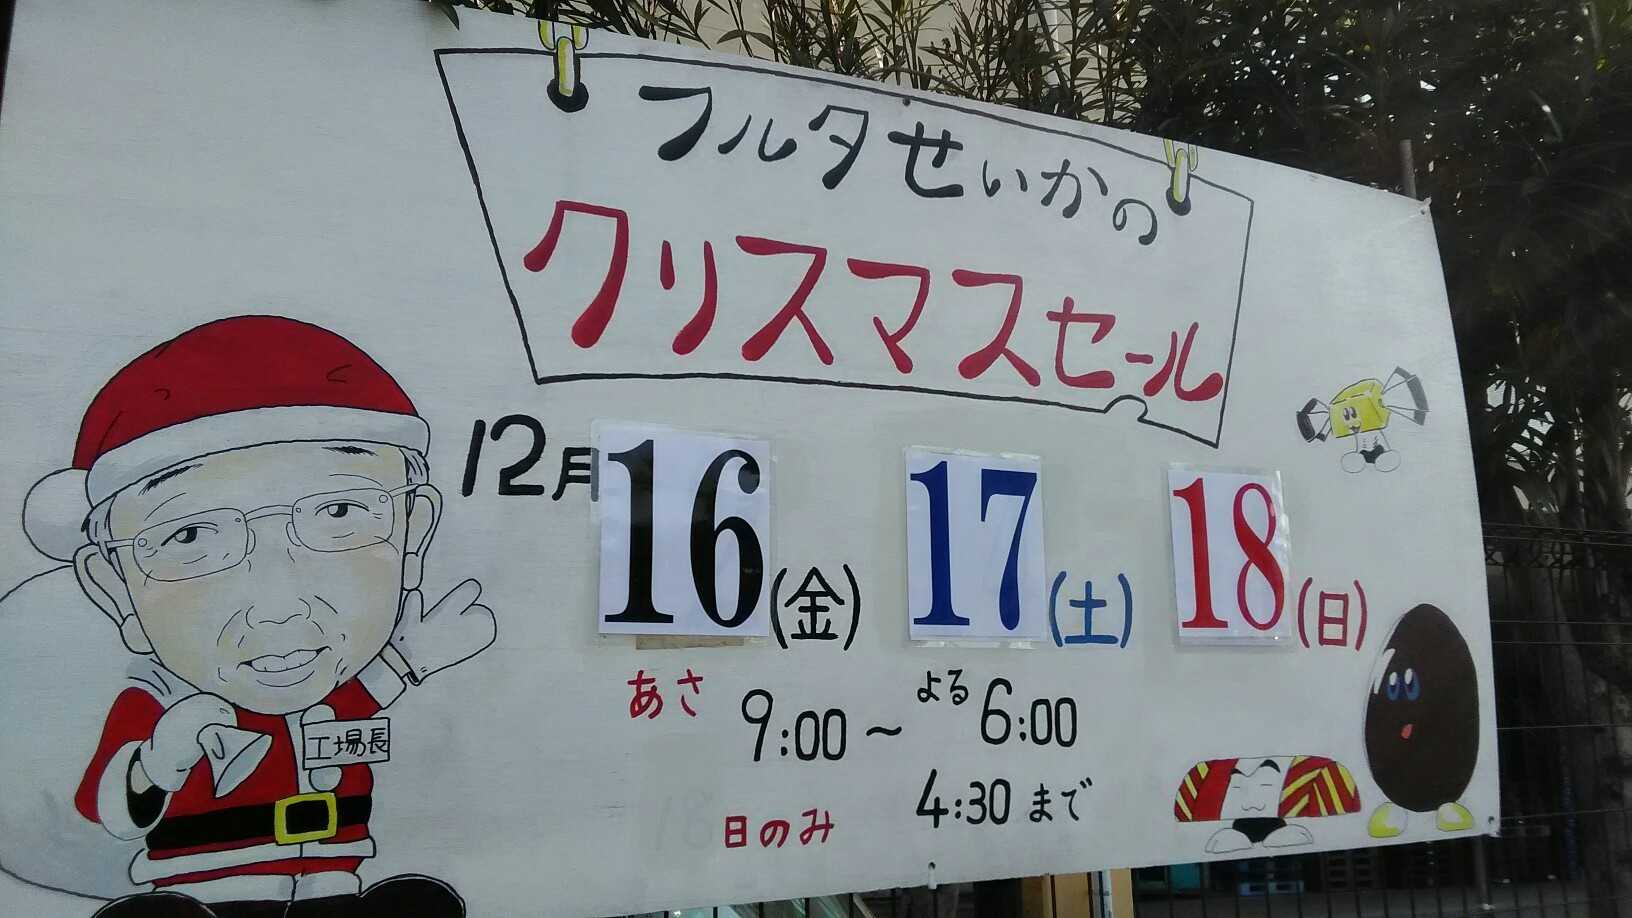 フルタせいかの
クリスマスセール
12月16(金) 17(土) 18(日)
あさ 9:00~よる6:00
18日のみ 4:30まで
工場長